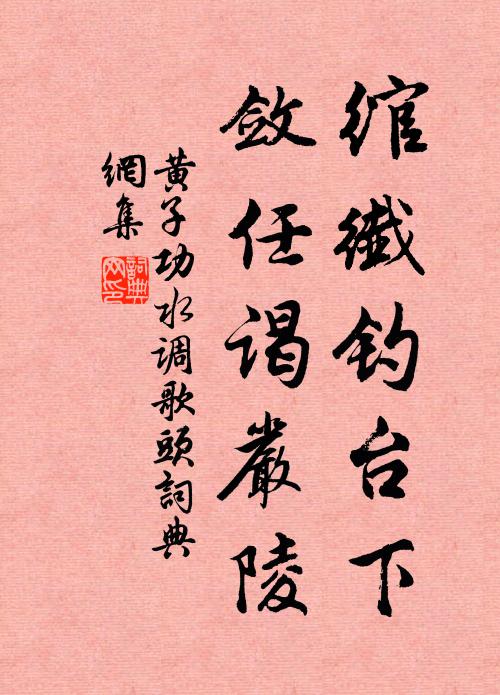 绾纖钓台下
敛任谒嚴陵
黄子功水调歌頭詞典
網集
詞典网印